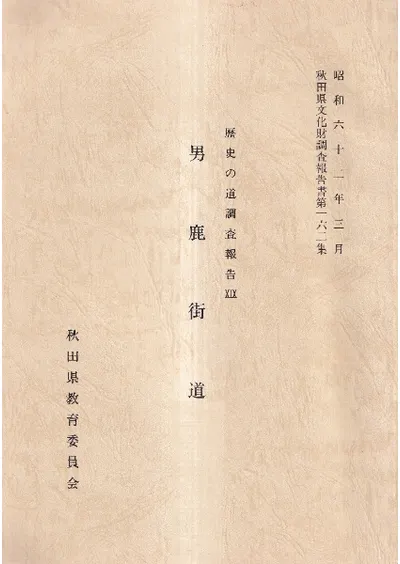 昭和六十一年三月
秋田県文化財調査報告書第一六二集
歴史の道調査報告XIX
男鹿街道
秋田県教育委員会